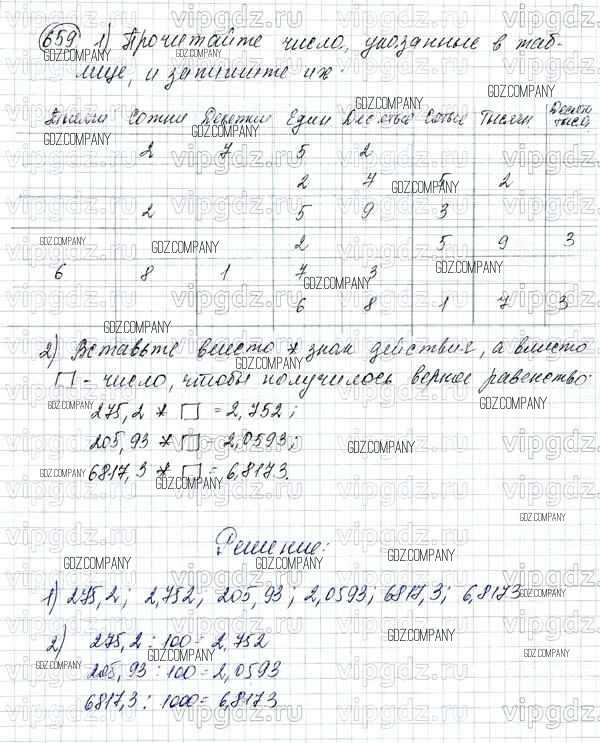 659 1) Прочитайте числа, указанные в таб-
лице, и запишите их:
Тысячи Сотни Десятки Един Десятые Сотые Тысячн Десяти тысяч
2 7 5 2
2 7 5 2
2 5 9 3
2 5 9 3
6 8 1 7 3
6 8 1 7 3
2) Вставьте вместо * знак действия, а вместо
□ - число, чтобы получилось верное равенство:
275,2 * □ = 2,752;
205,93 * □ = 2,0593;
6817,3 * □ = 6,8173.
Решение:
1) 275,2; 2,752; 205,93; 2,0593; 6817,3; 6,8173
2) 275,2 : 100 = 2,752
205,93 : 100 = 2,0593
6817,3 : 1000 = 6,8173
GDZ.COMPANY
vipgdz.ru